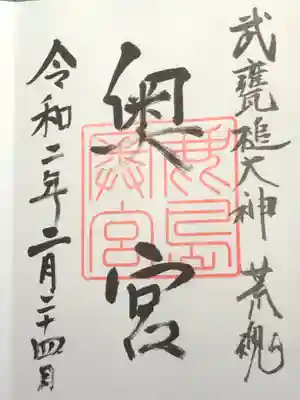 武甕槌大神 荒魂
奥宮
鹿島
奥宮
令和二年二月二十四日